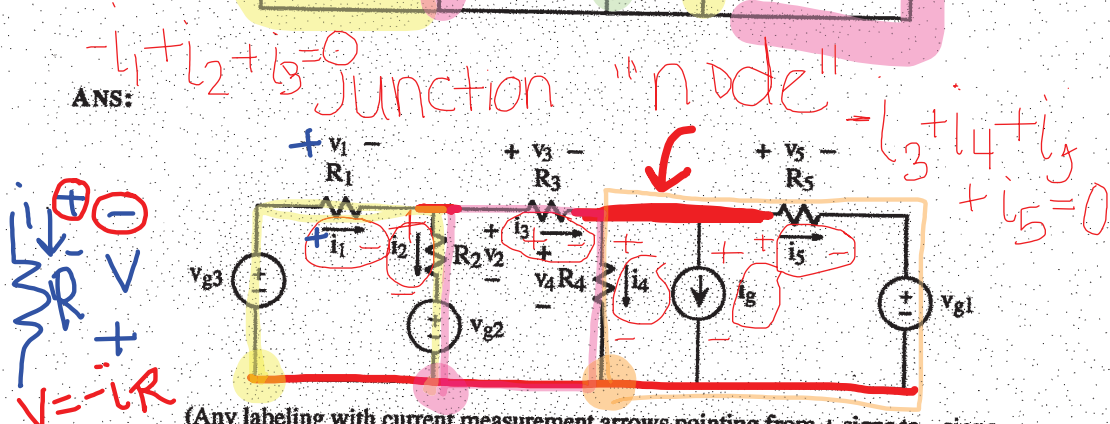 -i1+i2+i3=0
junction "node"
ANS:
-i3+i4+ig
+i5=0
+ v1 − + v3 − + v5 −
R1 R3 R5
i + −
i1 + − i2 + − R2 + v2 − i3 + − + v4 − R4 i4 + − ig + − i5 + −
R − V +
vg3 + − vg2 + − vg1 + −
V=-iR
(Any labeling with current measurement arrows pointing from + signs to − signs